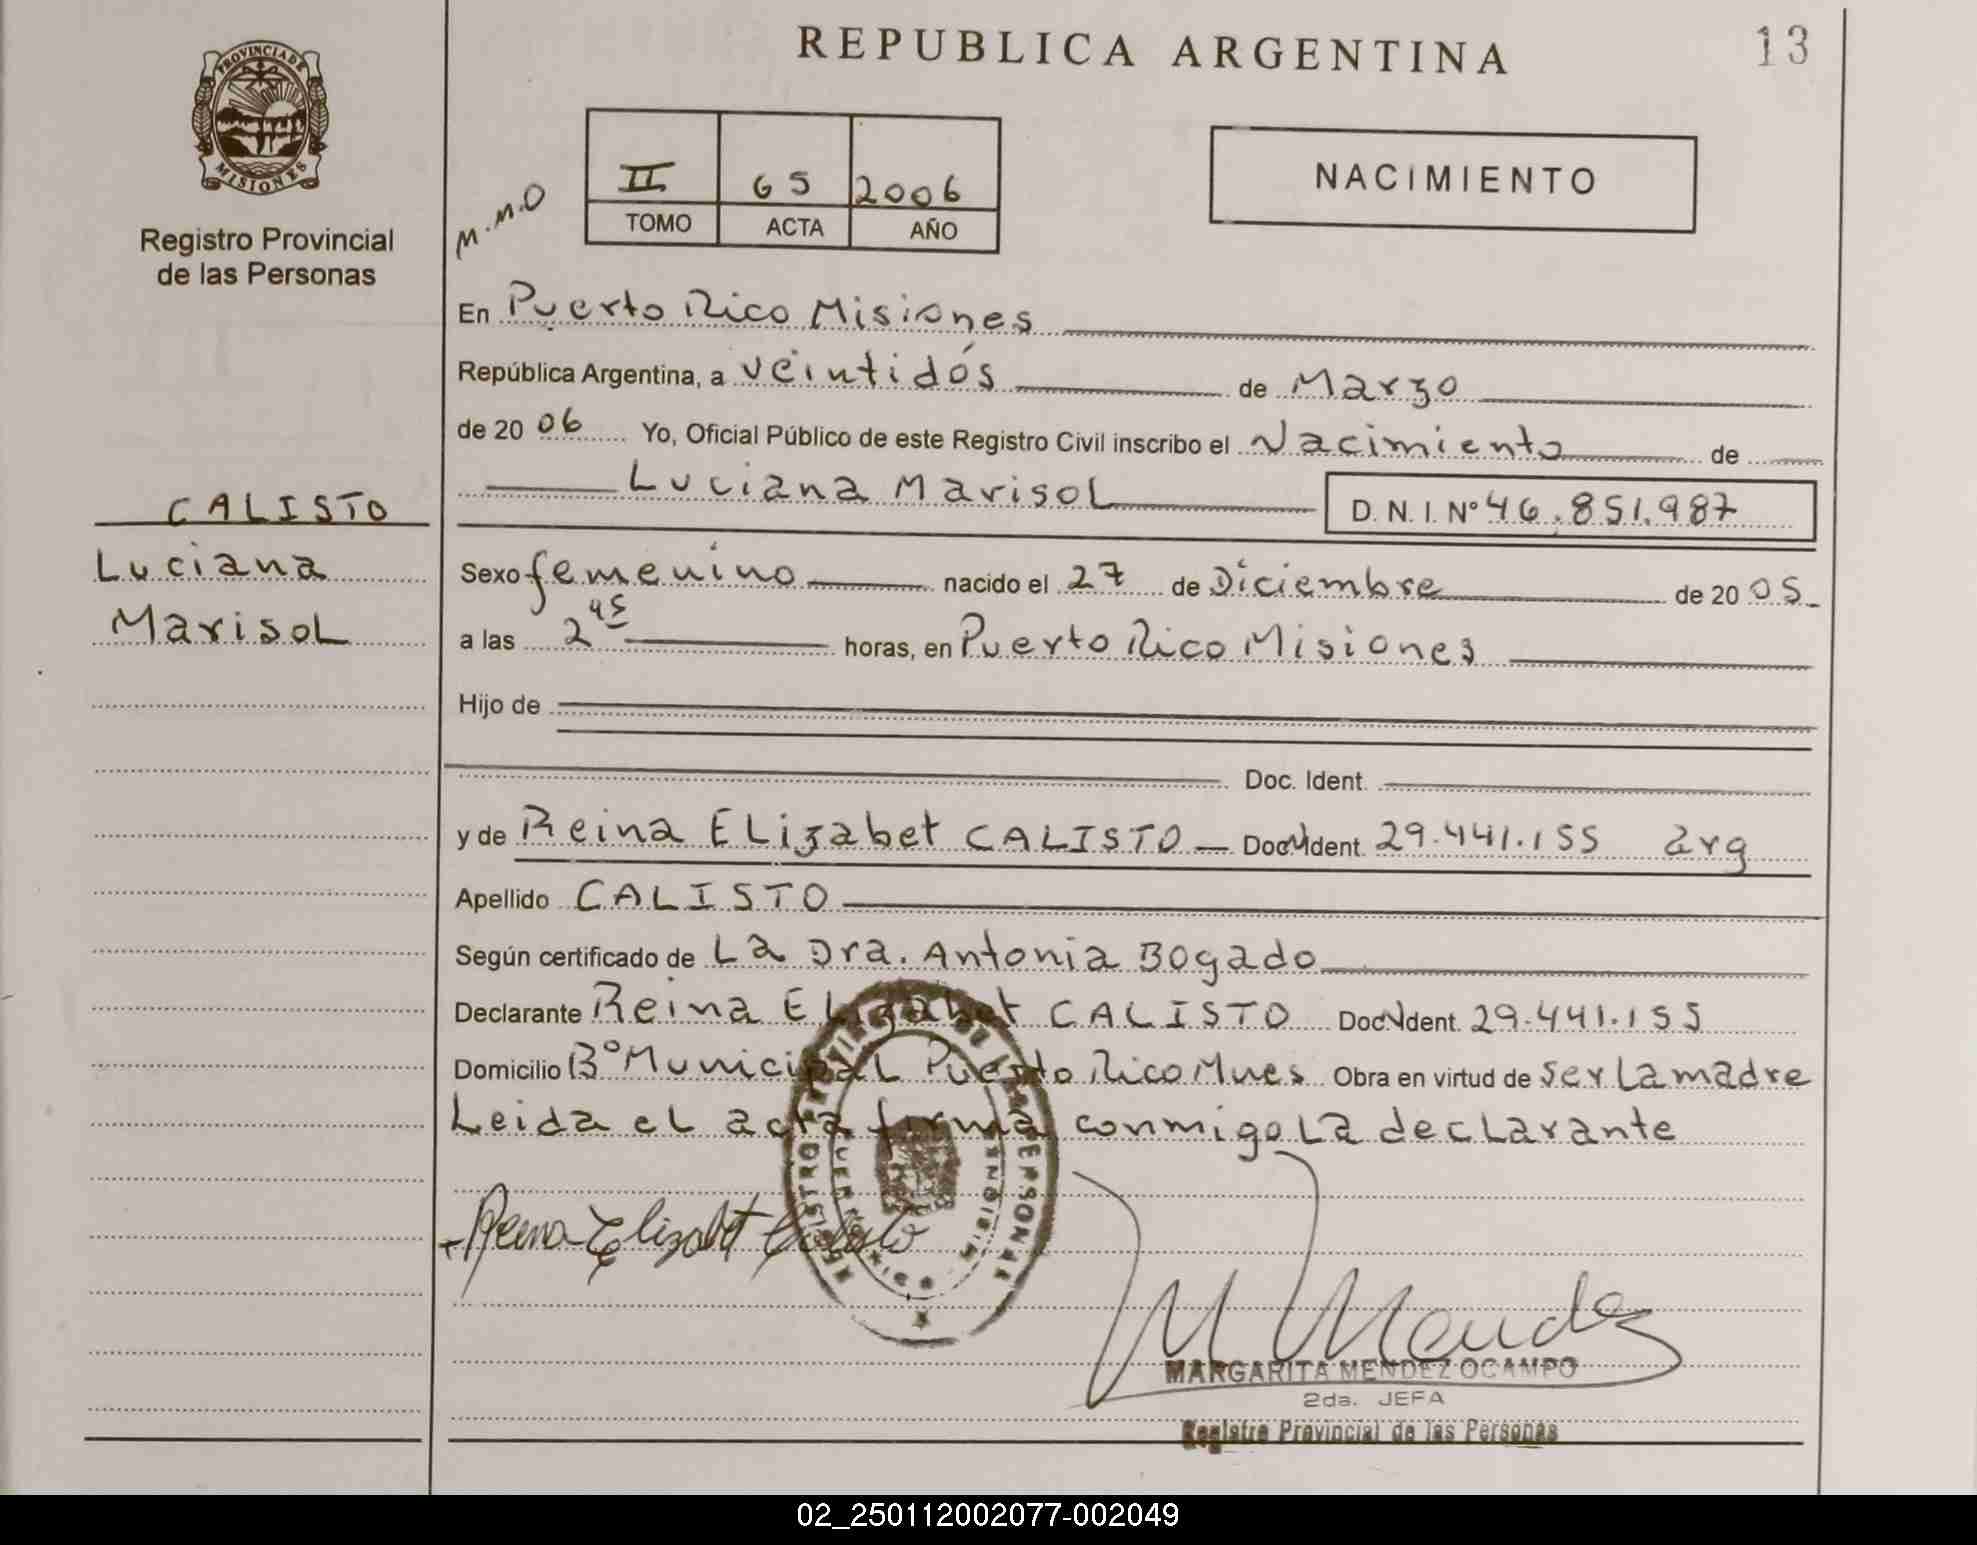 REPUBLICA ARGENTINA
13
PROVINCIA DE MISIONES
Registro Provincial
de las Personas
M.M.O
II 65 2006
TOMO ACTA AÑO
NACIMIENTO
En Puerto Rico Misiones
República Argentina, a veintidós de Marzo
de 2006 Yo, Oficial Público de este Registro Civil inscribo el Nacimiento de
Luciana Marisol D.N.I. Nº 46.851.987
CALISTO
Luciana
Marisol
Sexo femenino nacido el 27 de Diciembre de 2005
a las 2 45 horas, en Puerto Rico Misiones
Hijo de
Doc. Ident.
y de Reina Elizabet CALISTO Doc Ident. 29.441.155 arg
Apellido CALISTO
Según certificado de La Dra. Antonia Bogado
Declarante Reina Elizabet CALISTO Doc Ident. 29.441.155
Domicilio Bº Municipal Puerto Rico Mnes Obra en virtud de ser la madre
Leida el acta firma conmigo la declarante
Reina Elizabet Calisto
M Mendez
MARGARITA MENDEZ OCAMPO
2da. JEFA
Registro Provincial de las Personas
02_250112002077-002049